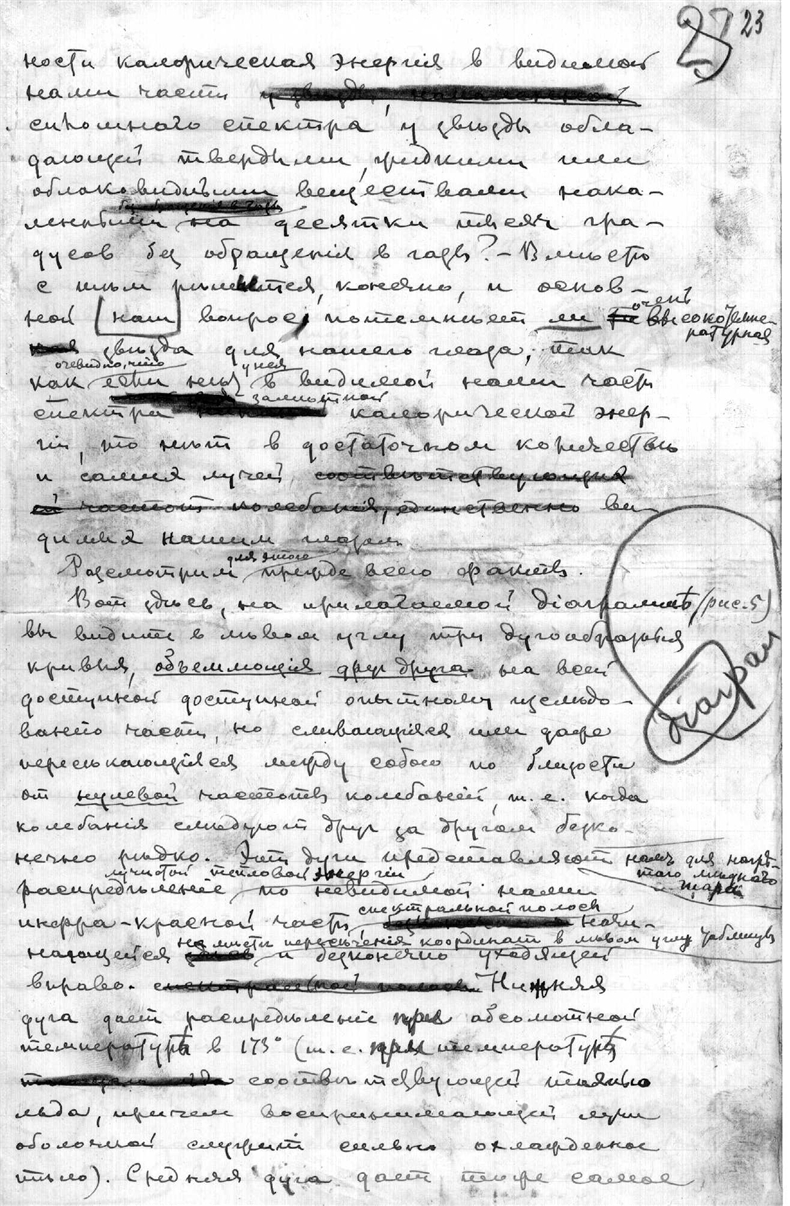 23
ности калорическая энергія в видимой
нами части
сикомного спектра у звѣзды обла-
дающей твердыми, жидкими или
облаковидными веществами нака-
ленными на десятки тысяч гра-
дусов без обращенія в газы? – Вмѣстѣ
с тѣм рѣшится, конечно, и основ-
ной наш вопрос, потемнѣет ли очень высокотемпе-
ратурная
звѣзда для нашего глаза, так
как очевидно, что если нет у нея в видимой нами части
спектра замѣтной калорической энер-
гіи, то нѣт в достаточном количествѣ
и самих лучей, соотвѣтствующих
частот колебанія, единственно ви-
димых нашим глазом.
Разсмотрим для этого прежде всего факты.
Вот здѣсь, на прилагаемой діаграммѣ (рис. 5)
вы видите в лѣвом углу три дугообразныя
кривыя, объемлющія друг друга на всей
доступной доступной опытному изслѣдо-
ванію части, но сливающіяся или даже
пересѣкающіяся между собою по близости
от нулевой частоты колебаній, т. е. когда
колебанія слѣдуют друг за другом безко-
нечно рѣдко. Эти дуги представляют нам для нагрѣ-
того мѣднаго
шара
распредѣленіе лучистой тепловой энергіи по невидимой нами
инфра-красной части спектральной полосы, начи-
нающейся на мѣстѣ пересѣченія координат в лѣвом углу таблицы и безконечно уходящей
вправо. Нижняя
дуга дает распредѣленіе при абсолютной
температурѣ в 173° (т. е. при температурѣ
соотвѣтствующей таянью
льда, причем воспринимающей лучи
оболочкой служит сильно охлажденное
тѣло). Средняя дуга дает тоже самое
діаграм